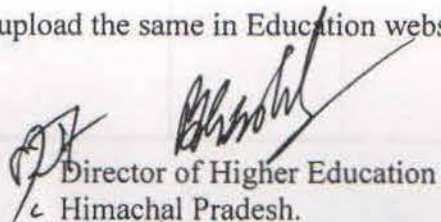 upload the same in Education webs
Director of Higher Education
Himachal Pradesh.